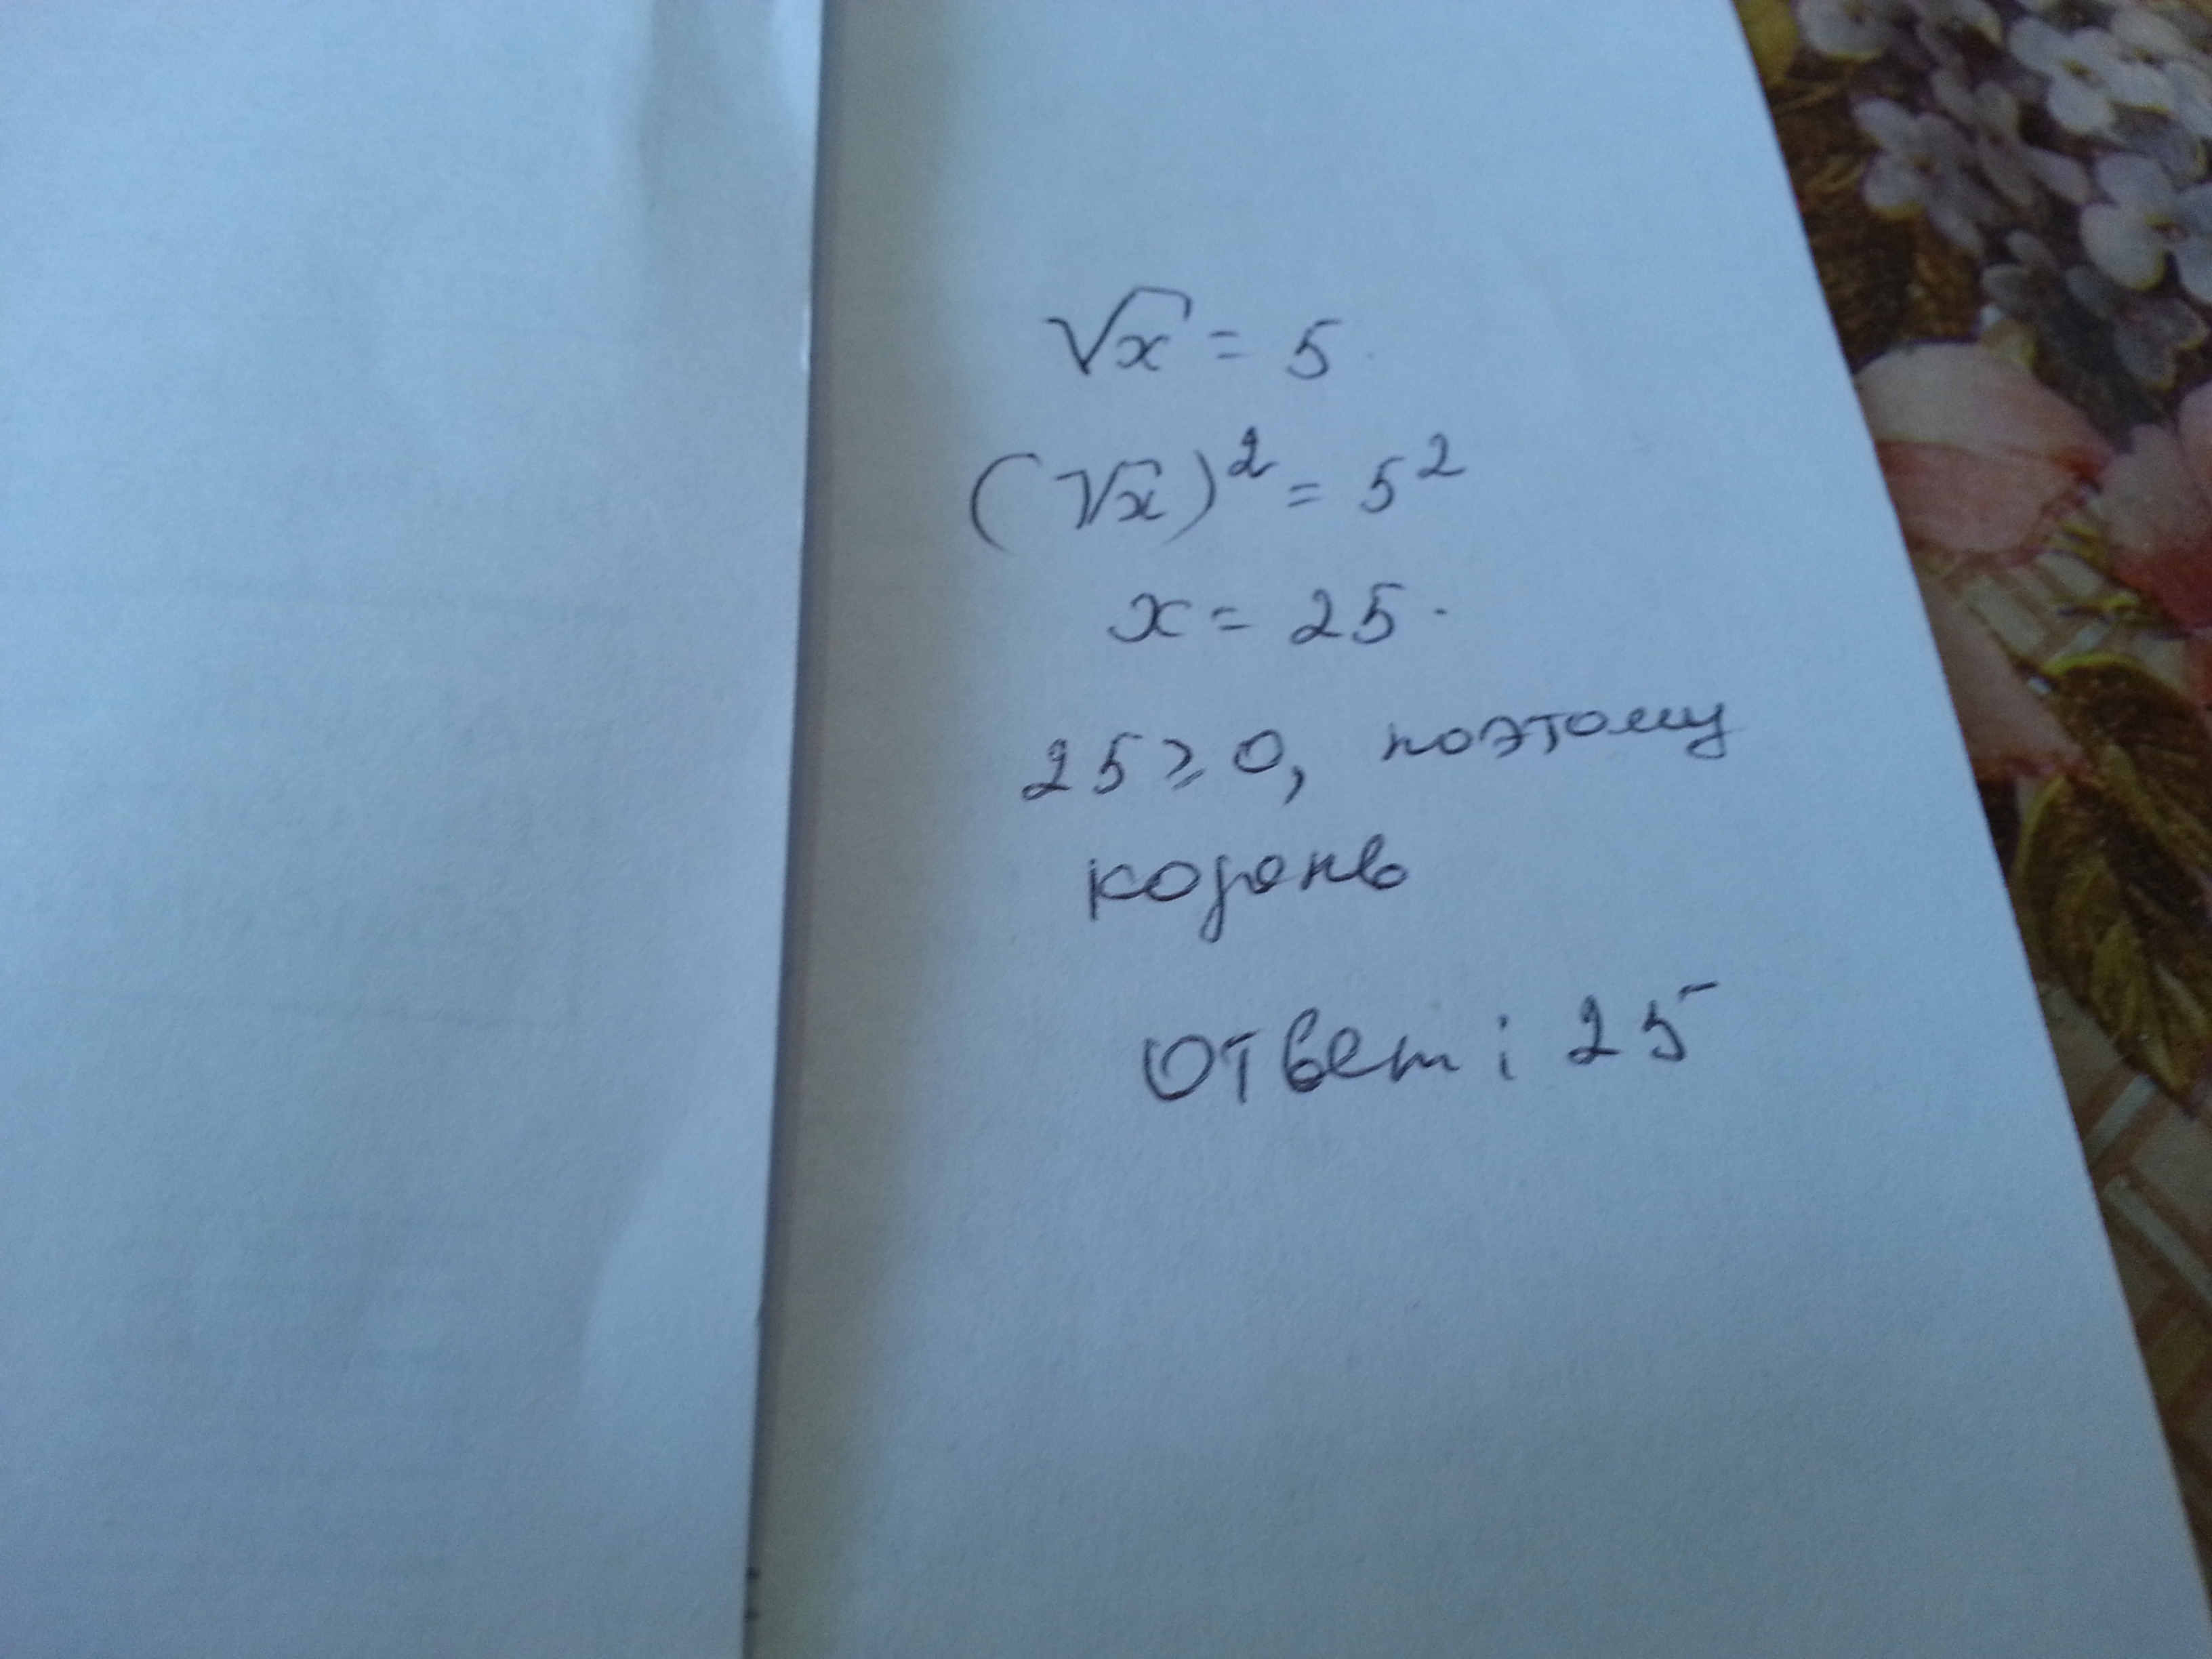 √x = 5.
(√x)² = 5²
x = 25.
25 ≥ 0, поэтому
корень
Ответ: 25